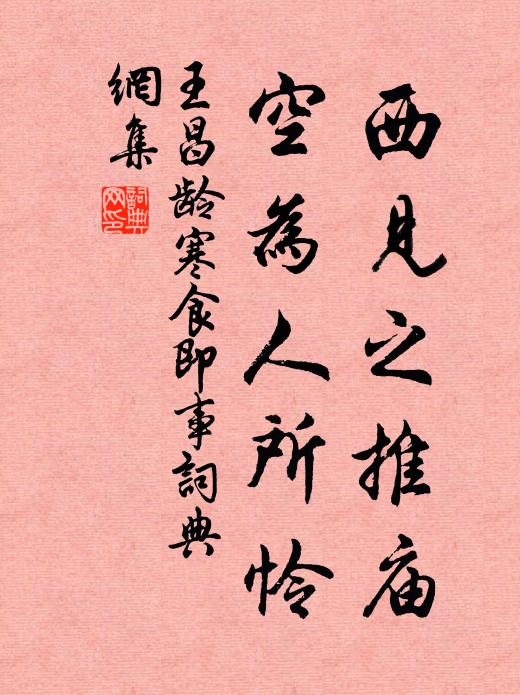 西見之推庙
空為人所怜
王昌龄寒食即事詞典
網集
詞典
网印